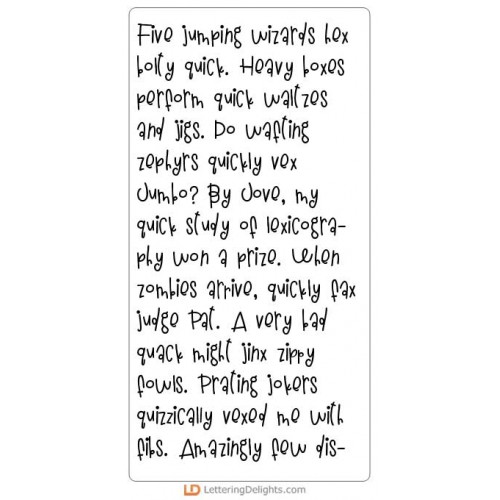 Five jumping wizards hex
bolty quick. Heavy boxes
perform quick waltzes
and jigs. Do wafting
zephyrs quickly vex
Jumbo? By Jove, my
quick study of lexicogra-
phy won a prize. When
zombies arrive, quickly fax
judge Pat. A very bad
quack might jinx zippy
fowls. Prating jokers
quizzically vexed me with
fibs. Amazingly few dis-
LD LetteringDelights.com